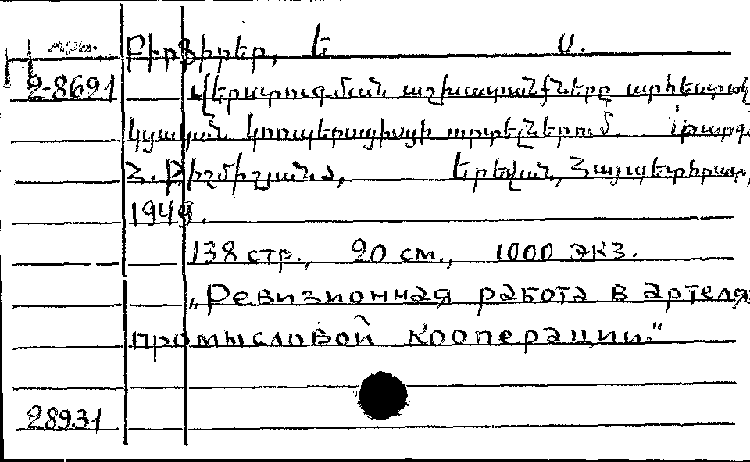 Բիրֆիրեր, Ե Ս.
2-8691 Վերստուգման աշխատանքները արհեստակ
ցական կոոպերացիայի արտելներում. Թարգ.
Հ. Քիշմիշյանև, Երեվան, Հայպետհրատ,
1949.
138 стр., 20 см., 1000 экз.
„Ревизионная работа в артеля
промысловой кооперации."
28931